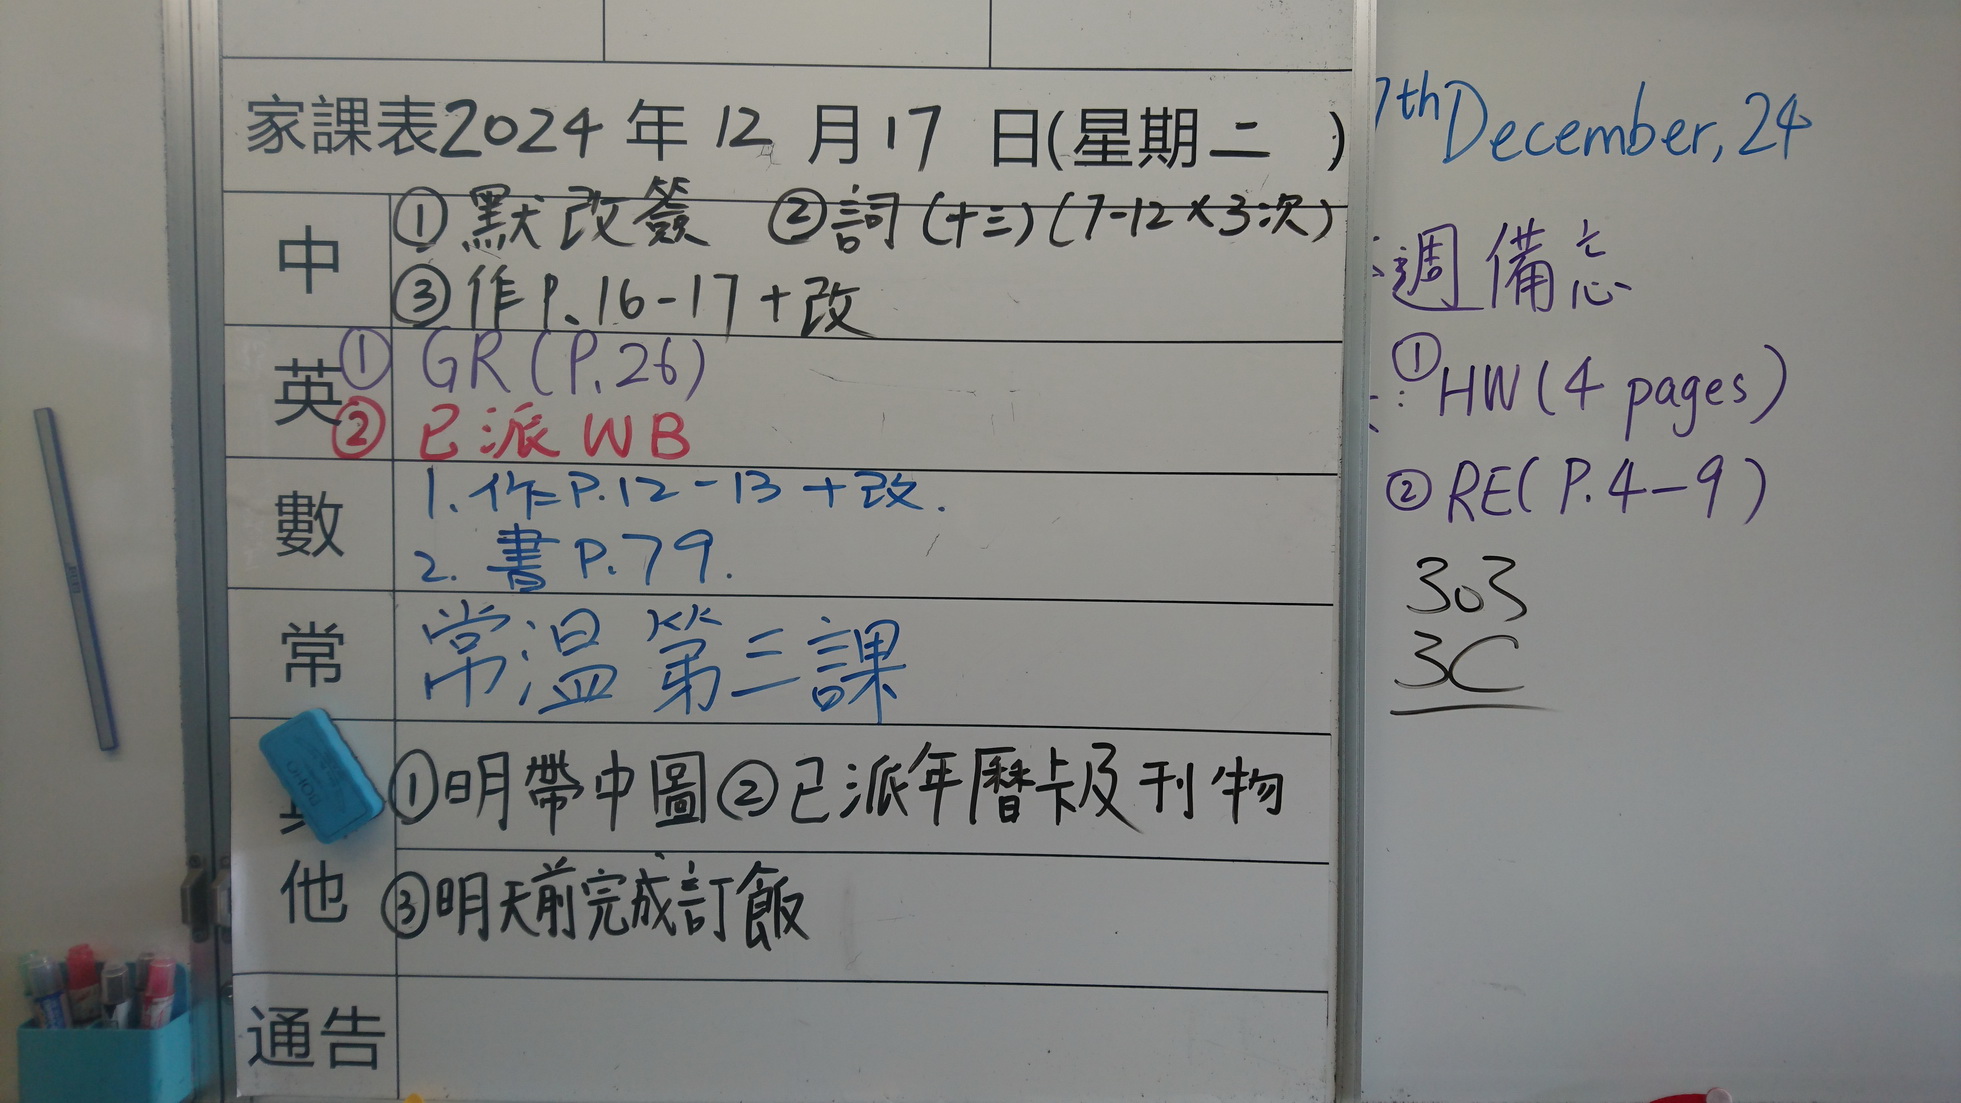 家課表2024年12月17日(星期二 )
中 ①默改簽 ②詞(十三)(7-12×3次)
③作P.16-17+改
英 ① GR(P.26)
② 已派WB
數 1. 作P.12-13+改.
2. 書P.79.
常 常溫第三課
①明帶中圖②已派年曆卡及刊物
他 ③明天前完成訂飯
通告
7th December, 24
週備忘
①HW(4 pages)
②RE(P.4-9)
303
3C